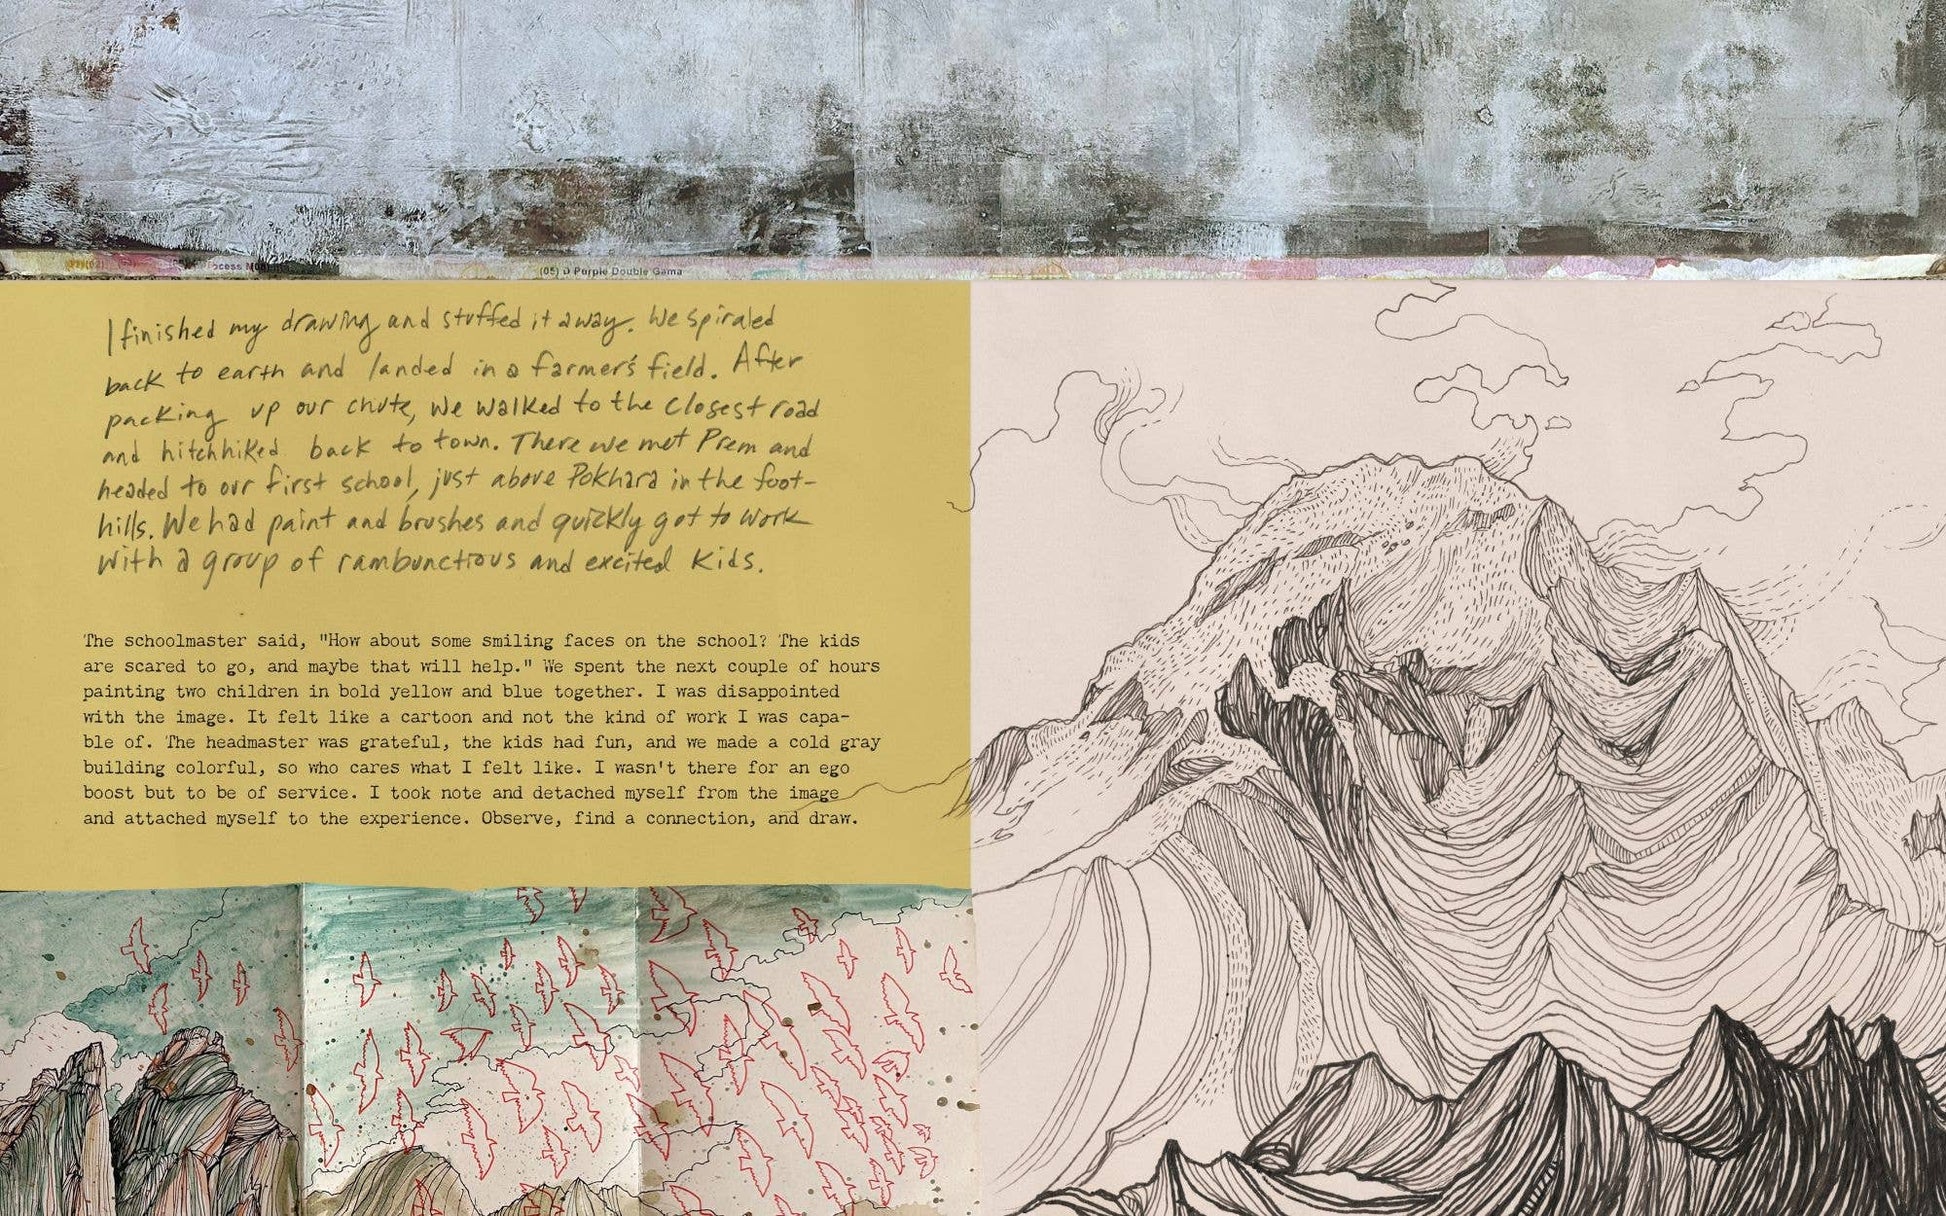 ocess
(05) D Purple Double Gama
I finished my drawing and stuffed it away. We spiraled
back to earth and landed in a farmer's field. After
packing up our chute, we walked to the closest road
and hitchhiked back to town. There we met Prem and
headed to our first school, just above Pokhara in the foot-
hills. We had paint and brushes and quickly got to work
with a group of rambunctious and excited kids.
The schoolmaster said, "How about some smiling faces on the school? The kids
are scared to go, and maybe that will help." We spent the next couple of hours
painting two children in bold yellow and blue together. I was disappointed
with the image. It felt like a cartoon and not the kind of work I was capa-
ble of. The headmaster was grateful, the kids had fun, and we made a cold gray
building colorful, so who cares what I felt like. I wasn't there for an ego
boost but to be of service. I took note and detached myself from the image
and attached myself to the experience. Observe, find a connection, and draw.